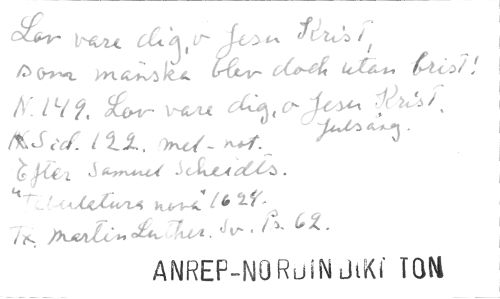 Lov vare dig, o Jesu Krist,
som mänska blev doch utan brist!
N. 149. Lov vare dig, o Jesu Krist.
Julsång.
Sid. 122. mel-not.
Efter Samuel Scheidts.
"Tabulatura nova" 1624.
Tx. Martin Luther. Sv. Ps. 62.
ANREP-NORDIN